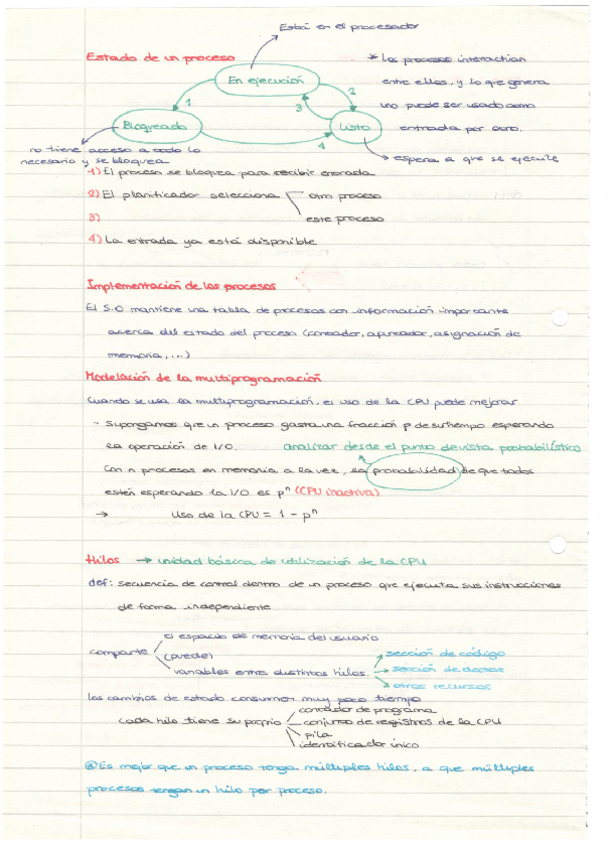 Está en el procesador
Estado de un proceso
* Los procesos interactúan
entre ellos, y lo que genera
uno puede ser usado como
entrada por otro.
En ejecución
1
2
3
4
Bloqueado
Listo
no tiene acceso a todo lo
necesario y se bloquea
espera a que se ejecute
1) El proceso se bloquea para recibir entrada
2) El planificador selecciona
otro proceso
3)
este proceso
4) La entrada ya está disponible
Implementación de los procesos
El S.O mantiene una tabla de procesos con información importante
acerca del estado del proceso (contador, apuntador, asignación de
memoria, ...)
Modelación de la multiprogramación
Cuando se usa la multiprogramación, el uso de la CPU puede mejorar
- Supongamos que un proceso gasta una fracción p de su tiempo esperando
la operación de I/O.
analizar desde el punto de vista probabilístico
Con n procesos en memoria a la vez, la probabilidad de que todos
estén esperando la I/O es pⁿ (CPU inactiva)
→ Uso de la CPU = 1 - pⁿ
Hilos → unidad básica de utilización de la CPU
def: secuencia de control dentro de un proceso que ejecuta sus instrucciones
de forma independiente
el espacio de memoria del usuario
comparte (puede)
variables entre distintos hilos.
sección de código
sección de datos
otros recursos
los cambios de estado consumen muy poco tiempo
cada hilo tiene su propio
contador de programa
conjunto de registros de la CPU
pila
identificador único
Es mejor que un proceso tenga múltiples hilos, a que múltiples
procesos tengan un hilo por proceso.